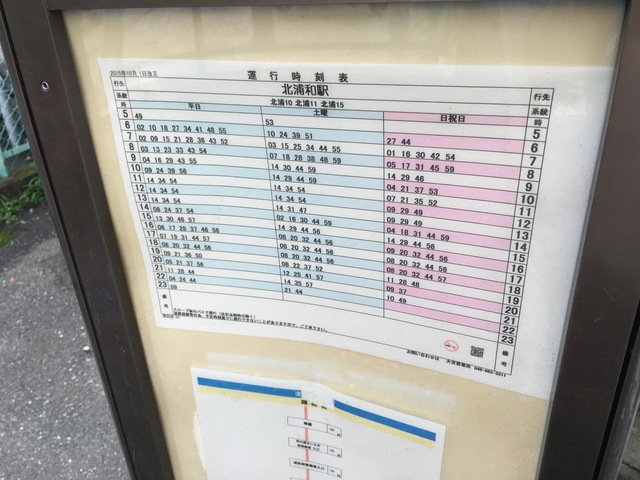 2015年10月 1日改正
運行時刻表
行先 北浦和駅 行先
系統 北浦10 北浦11 北浦15 系統
時 平日 土曜 日祝日 時
5 49 53 5
6 02 10 18 27 34 41 48 55 10 24 39 51 27 44 6
7 02 09 15 21 28 36 43 52 03 15 25 34 44 55 01 16 30 42 54 7
8 03 13 23 33 43 54 07 18 28 38 48 59 05 17 31 45 59 8
9 04 16 29 43 55 14 30 44 59 14 29 46 9
10 09 24 39 56 14 29 44 59 04 21 37 53 10
11 14 34 54 14 34 54 07 21 35 52 11
12 14 34 54 14 34 54 09 29 49 12
13 14 34 54 14 31 47 09 29 49 13
14 08 24 37 54 02 16 30 44 59 04 18 31 44 59 14
15 13 30 46 57 14 29 44 56 14 29 44 56 15
16 06 17 28 37 48 56 08 20 32 44 56 08 20 32 44 56 16
17 07 19 31 44 57 08 20 32 44 56 08 20 32 44 56 17
18 08 20 32 44 56 08 20 32 44 56 08 20 32 44 57 18
19 08 20 32 44 56 08 20 32 44 56 11 28 48 19
20 09 21 36 50 08 22 37 52 09 37 20
21 05 21 37 56 12 25 41 57 10 49 21
22 11 28 44 14 35 57 22
23 04 24 44 21 44 23
09
備考 備考
お問い合わせは 大宮営業所